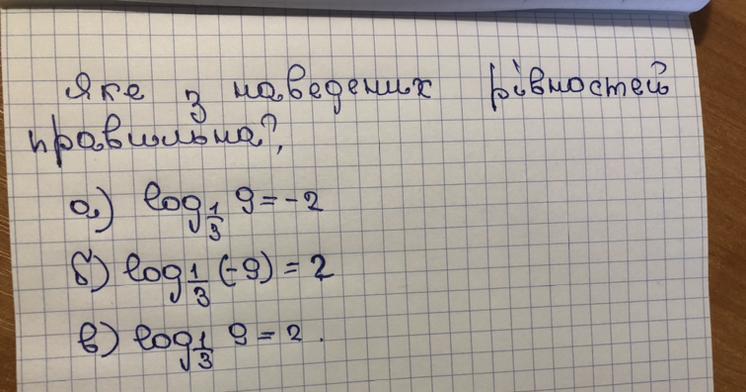 Яке з наведених рівностей
правильна?,
а) log 1/3 9 = -2
б) log 1/3 (-9) = 2
в) log 1/3 9 = 2.